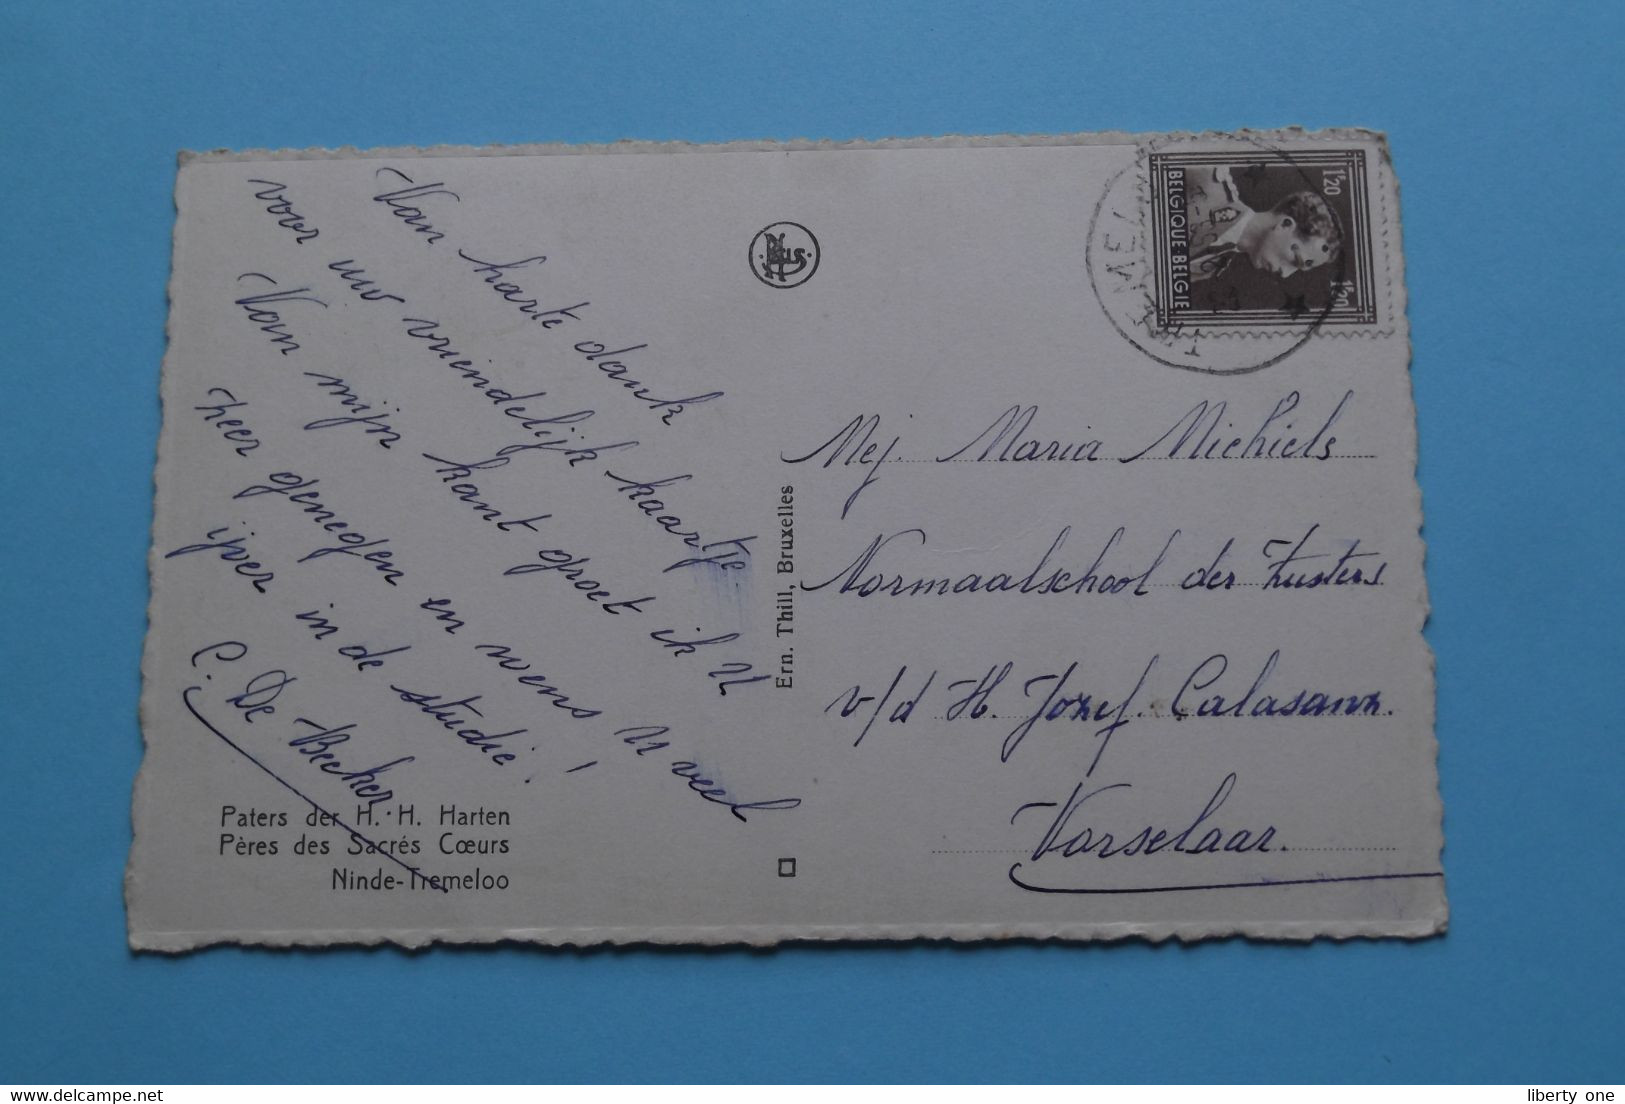 Van harte dank
voor uw vriendelijk kaartje.
Van mijn kant groet ik U
zeer genegen en wens U veel
ijver in de studie!
C. De Becker
Paters der H. H. Harten
Pères des Sacrés Cœurs
Ninde-Tremeloo
Ern. Thill, Bruxelles
1F20
1F20
BELGIQUE-BELGIE
TREMELO
Mej. Maria Michiels
Normaalschool der Zusters
v/d H. Jozef Calasanz.
Vorselaar.
liberty one